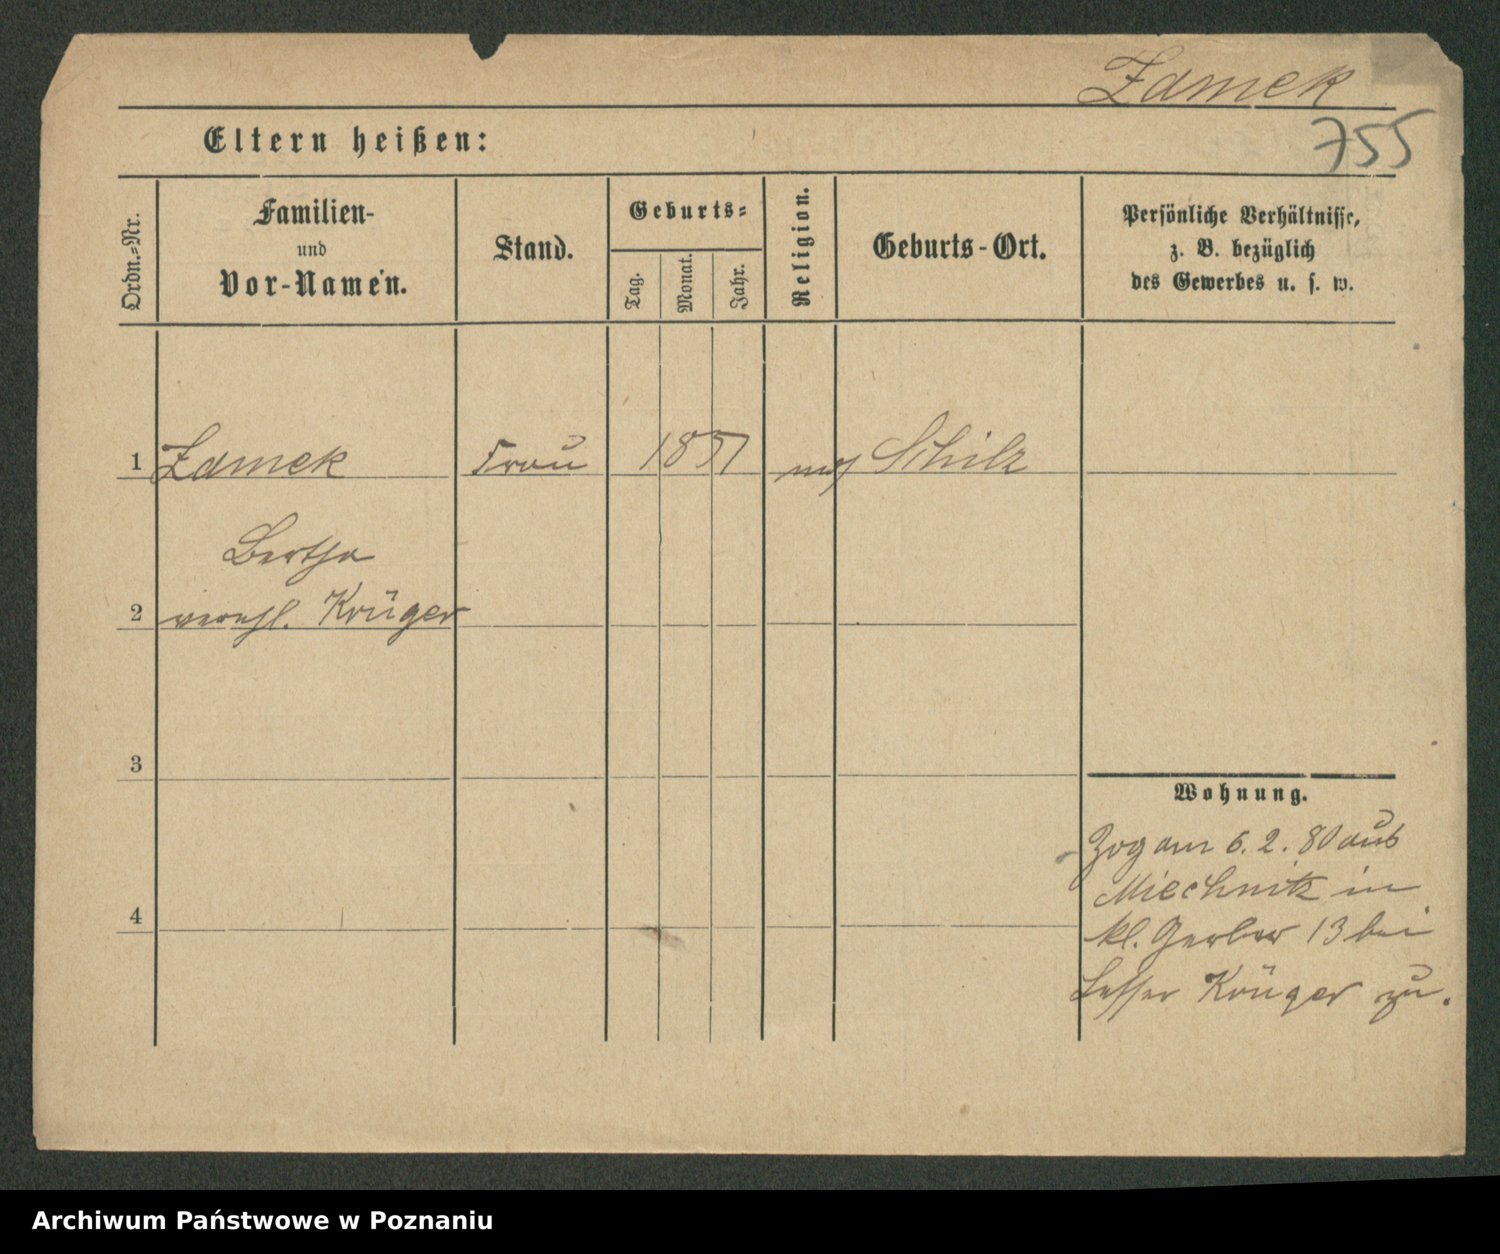 Zamek
755
Eltern heißen:
Ordn.-Nr.
Familien-
und
Vor-Namen.
Stand.
Geburts-
Tag.
Monat.
Jahr.
Religion.
Geburts-Ort.
Persönliche Verhältnisse,
z. B. bezüglich
des Gewerbes u. s. w.
1 Zamek Frau 1851 mos Schilz
Bertha
2 verehl. Krüger
3
4
Wohnung.
Zog am 6. 2. 80 aus
Miechnitz in
kl. Gerber 13 bei
Lesser Krüger zu.
Archiwum Państwowe w Poznaniu